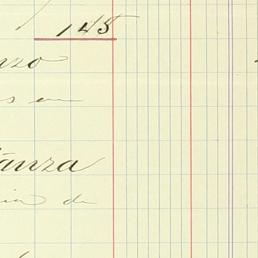 145
nzo
s en
anza
cia de